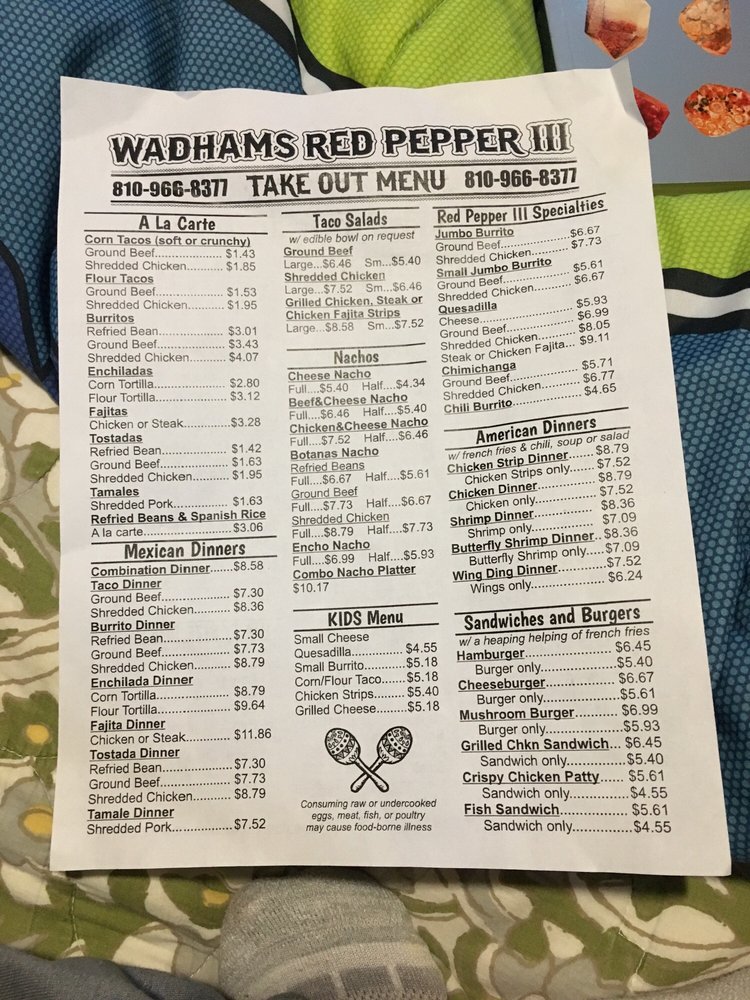 WADHAMS RED PEPPER III
810-966-8377 TAKE OUT MENU 810-966-8377
A La Carte
Corn Tacos (soft or crunchy)
Ground Beef..................... $1.43
Shredded Chicken........... $1.85
Flour Tacos
Ground Beef..................... $1.53
Shredded Chicken........... $1.95
Burritos
Refried Bean.................... $3.01
Ground Beef..................... $3.43
Shredded Chicken........... $4.07
Enchiladas
Corn Tortilla..................... $2.80
Flour Tortilla..................... $3.12
Fajitas
Chicken or Steak..............$3.28
Tostadas
Refried Bean.................... $1.42
Ground Beef..................... $1.63
Shredded Chicken........... $1.95
Tamales
Shredded Pork................. $1.63
Refried Beans & Spanish Rice
A la carte.......................... $3.06
Mexican Dinners
Combination Dinner......$8.58
Taco Dinner
Ground Beef..................... $7.30
Shredded Chicken........... $8.36
Burrito Dinner
Refried Bean.................... $7.30
Ground Beef..................... $7.73
Shredded Chicken........... $8.79
Enchilada Dinner
Corn Tortilla..................... $8.79
Flour Tortilla..................... $9.64
Fajita Dinner
Chicken or Steak............$11.86
Tostada Dinner
Refried Bean.................... $7.30
Ground Beef..................... $7.73
Shredded Chicken........... $8.79
Tamale Dinner
Shredded Pork.................$7.52
Taco Salads
w/ edible bowl on request
Ground Beef
Large...$6.46 Sm...$5.40
Shredded Chicken
Large...$7.52 Sm...$6.46
Grilled Chicken, Steak or
Chicken Fajita Strips
Large...$8.58 Sm...$7.52
Nachos
Cheese Nacho
Full....$5.40 Half....$4.34
Beef&Cheese Nacho
Full....$6.46 Half....$5.40
Chicken&Cheese Nacho
Full....$7.52 Half....$6.46
Botanas Nacho
Refried Beans
Full....$6.67 Half....$5.61
Ground Beef
Full....$7.73 Half....$6.67
Shredded Chicken
Full....$8.79 Half....$7.73
Encho Nacho
Full....$6.99 Half....$5.93
Combo Nacho Platter
$10.17
KIDS Menu
Small Cheese
Quesadilla.............. $4.55
Small Burrito..........$5.18
Corn/Flour Taco.....$5.18
Chicken Strips....... $5.40
Grilled Cheese.......$5.18
Consuming raw or undercooked
eggs, meat, fish, or poultry
may cause food-borne illness
Red Pepper III Specialties
Jumbo Burrito
Ground Beef....................$6.67
Shredded Chicken.......... $7.73
Small Jumbo Burrito
Ground Beef....................$5.61
Shredded Chicken.......... $6.67
Quesadilla
Cheese............................ $5.93
Ground Beef....................$6.99
Shredded Chicken.......... $8.05
Steak or Chicken Fajita... $9.11
Chimichanga
Ground Beef....................$5.71
Shredded Chicken.......... $6.77
Chili Burrito.................... $4.65
American Dinners
w/ french fries & chili, soup or salad
Chicken Strip Dinner...... $8.79
Chicken Strips only........ $7.52
Chicken Dinner............... $8.79
Chicken only.................. $7.52
Shrimp Dinner................ $8.36
Shrimp only................... $7.09
Butterfly Shrimp Dinner.. $8.36
Butterfly Shrimp only.....$7.09
Wing Ding Dinner............$7.52
Wings only..................... $6.24
Sandwiches and Burgers
w/ a heaping helping of french fries
Hamburger..................... $6.45
Burger only.................. $5.40
Cheeseburger................ $6.67
Burger only...................$5.61
Mushroom Burger.......... $6.99
Burger only...................$5.93
Grilled Chkn Sandwich... $6.45
Sandwich only..............$5.40
Crispy Chicken Patty...... $5.61
Sandwich only..............$4.55
Fish Sandwich................$5.61
Sandwich only..............$4.55